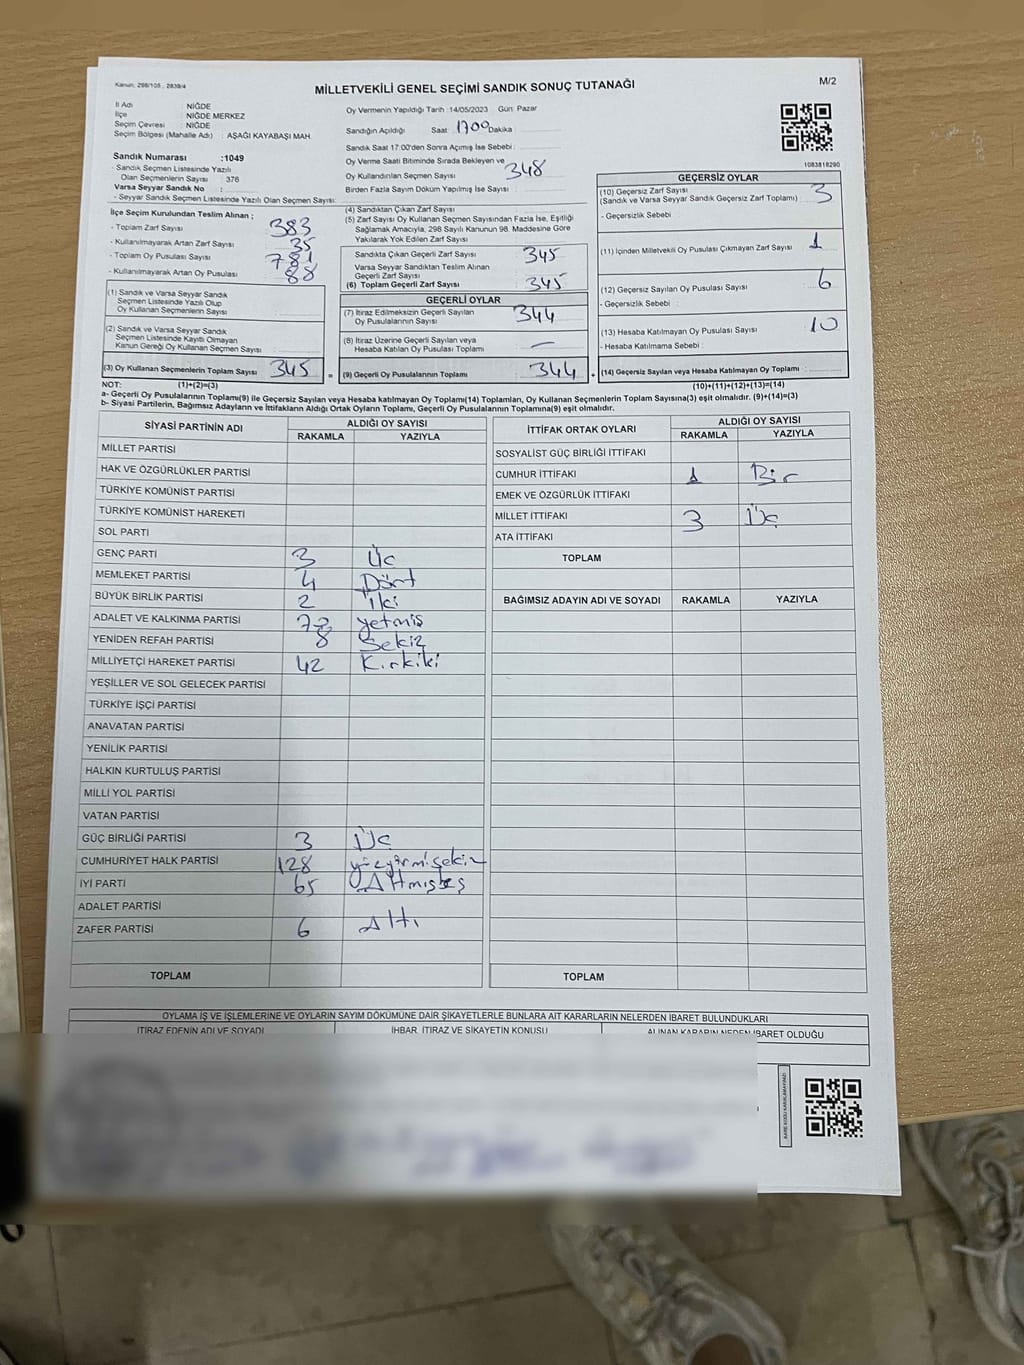 Kanun: 298/105 , 2839/4
MİLLETVEKİLİ GENEL SEÇİMİ SANDIK SONUÇ TUTANAĞI
M/2
İl Adı : NİĞDE
İlçe : NİĞDE MERKEZ
Seçim Çevresi : NİĞDE
Seçim Bölgesi (Mahalle Adı) : AŞAĞI KAYABAŞI MAH.
Sandık Numarası :1049
- Sandık Seçmen Listesinde Yazılı
Olan Seçmenlerin Sayısı : 376
Varsa Seyyar Sandık No :
- Seyyar Sandık Seçmen Listesinde Yazılı Olan Seçmen Sayısı:
Oy Vermenin Yapıldığı Tarih :14/05/2023 Gün: Pazar
Sandığın Açıldığı Saat: 1700 Dakika :
Sandık Saat 17:00'den Sonra Açımış İse Sebebi :
Oy Verme Saati Bitiminde Sırada Bekleyen ve
Oy Kullandırılan Seçmen Sayısı : 348
Birden Fazla Sayım Döküm Yapılmış İse Sayısı :
1083818290
İlçe Seçim Kurulundan Teslim Alınan ;
- Toplam Zarf Sayısı : 383
- Kullanılmayarak Artan Zarf Sayısı : 35
- Toplam Oy Pusulası Sayısı : 781
- Kullanılmayarak Artan Oy Pusulası : 88
(1) Sandık ve Varsa Seyyar Sandık
Seçmen Listesinde Yazılı Olup
Oy Kullanan Seçmenlerin Sayısı :
(2) Sandık ve Varsa Seyyar Sandık
Seçmen Listesinde Kayıtlı Olmayan
Kanun Gereği Oy Kullanan Seçmen Sayısı :
(3) Oy Kullanan Seçmenlerin Toplam Sayısı : 345
(4) Sandıktan Çıkan Zarf Sayısı :
(5) Zarf Sayısı Oy Kullanan Seçmen Sayısından Fazla İse, Eşitliği
Sağlamak Amacıyla, 298 Sayılı Kanunun 98. Maddesine Göre
Yakılarak Yok Edilen Zarf Sayısı :
Sandıkta Çıkan Geçerli Zarf Sayısı : 345
Varsa Seyyar Sandıktan Teslim Alınan
Geçerli Zarf Sayısı
(6) Toplam Geçerli Zarf Sayısı : 345
GEÇERLİ OYLAR
(7) İtiraz Edilmeksizin Geçerli Sayılan
Oy Pusulalarının Sayısı : 344
(8) İtiraz Üzerine Geçerli Sayılan veya
Hesaba Katılan Oy Pusulası Toplamı : —
= (9) Geçerli Oy Pusulalarının Toplamı : 344
GEÇERSİZ OYLAR
(10) Geçersiz Zarf Sayısı : 3
(Sandık ve Varsa Seyyar Sandık Geçersiz Zarf Toplamı)
- Geçersizlik Sebebi :
(11) İçinden Milletvekili Oy Pusulası Çıkmayan Zarf Sayısı : 1
(12) Geçersiz Sayılan Oy Pusulası Sayısı : 6
- Geçersizlik Sebebi :
(13) Hesaba Katılmayan Oy Pusulası Sayısı : 10
- Hesaba Katılmama Sebebi :
+ (14) Geçersiz Sayılan veya Hesaba Katılmayan Oy Toplamı :
NOT: (1)+(2)=(3)
(10)+(11)+(12)+(13)=(14)
a- Geçerli Oy Pusulalarının Toplamı(9) ile Geçersiz Sayılan veya Hesaba Katılmayan Oy Toplamı(14) Toplamları, Oy Kullanan Seçmenlerin Toplam Sayısına(3) eşit olmalıdır. (9)+(14)=(3)
b- Siyasi Partilerin, Bağımsız Adayların ve İttifakların Aldığı Ortak Oyların Toplamı, Geçerli Oy Pusulalarının Toplamına(9) eşit olmalıdır.
SİYASİ PARTİNİN ADI ALDIĞI OY SAYISI
RAKAMLA YAZIYLA
MİLLET PARTİSİ
HAK VE ÖZGÜRLÜKLER PARTİSİ
TÜRKİYE KOMÜNİST PARTİSİ
TÜRKİYE KOMÜNİST HAREKETİ
SOL PARTİ
GENÇ PARTİ 3 Üç
MEMLEKET PARTİSİ 4 Dört
BÜYÜK BİRLİK PARTİSİ 2 İki
ADALET VE KALKINMA PARTİSİ yetmiş
YENİDEN REFAH PARTİSİ 8 Sekiz
MİLLİYETÇİ HAREKET PARTİSİ 42 Kırkiki
YEŞİLLER VE SOL GELECEK PARTİSİ
TÜRKİYE İŞÇİ PARTİSİ
ANAVATAN PARTİSİ
YENİLİK PARTİSİ
HALKIN KURTULUŞ PARTİSİ
MİLLİ YOL PARTİSİ
VATAN PARTİSİ
GÜÇ BİRLİĞİ PARTİSİ 3 Üç
CUMHURİYET HALK PARTİSİ 128 yüzyirmisekiz
İYİ PARTİ 65 Altmışbeş
ADALET PARTİSİ
ZAFER PARTİSİ 6 Altı
TOPLAM
İTTİFAK ORTAK OYLARI ALDIĞI OY SAYISI
RAKAMLA YAZIYLA
SOSYALİST GÜÇ BİRLİĞİ İTTİFAKI
CUMHUR İTTİFAKI 1 Bir
EMEK VE ÖZGÜRLÜK İTTİFAKI
MİLLET İTTİFAKI 3 Üç
ATA İTTİFAKI
TOPLAM
BAĞIMSIZ ADAYIN ADI VE SOYADI RAKAMLA YAZIYLA
TOPLAM
OYLAMA İŞ VE İŞLEMLERİNE VE OYLARIN SAYIM DÖKÜMÜNE DAİR ŞİKAYETLERLE BUNLARA AİT KARARLARIN NELERDEN İBARET BULUNDUKLARI
İTİRAZ EDENİN ADI VE SOYADI İHBAR, İTİRAZ VE ŞİKAYETİN KONUSU ALINAN KARARIN NEDEN İBARET OLDUĞU